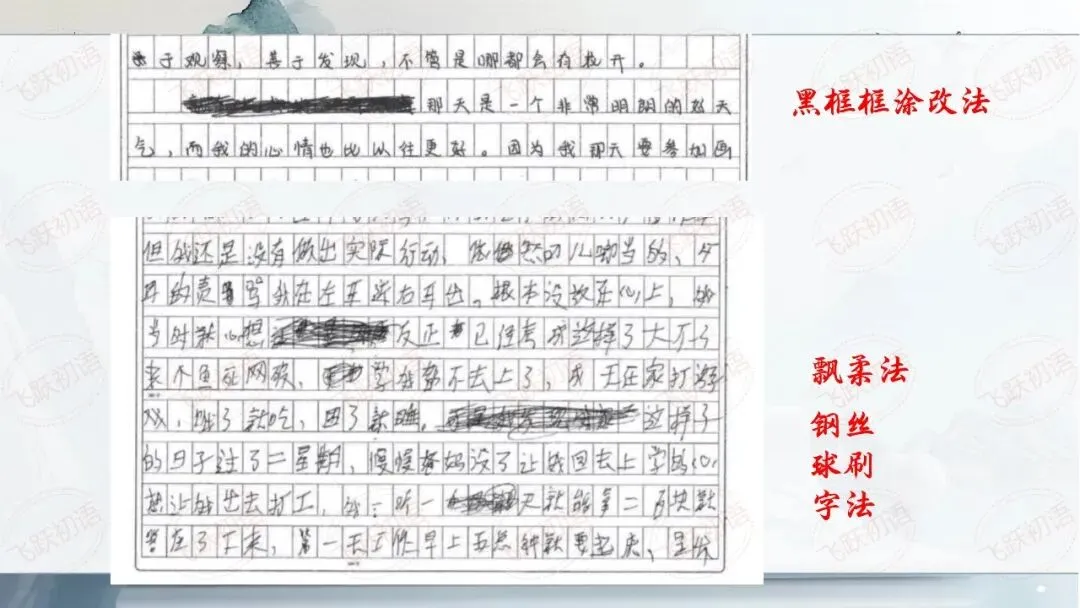 于观察，善于发现，不管是哪都会有放开。
那天是一个非常明朗的好天
气，而我的心情也比以往更好。因为我那天要参加画
黑框框涂改法
但我还是没有做出实际行动，依然吊儿啷当的，
的责骂我在左耳进右耳出。根本没放在心上，我
当时就心想反正已经考成这样了大不了
来个鱼死网破，学我都不去上了，成天在家打游
戏，饿了就吃，困了就睡，这样子
的日子过了二星期，慢慢妈没了让我回去上学的心
想让我出去打工，我一听一天就能拿二百块就
答应了下来，第一天工作早上五点钟就要起床，
飘柔法
钢丝
球刷
字法
飞跃初语